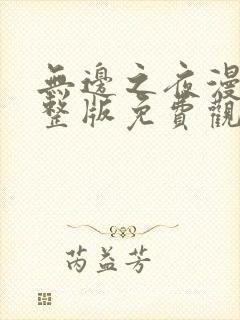 無邊之夜漫
整版免費觀
芮益芳